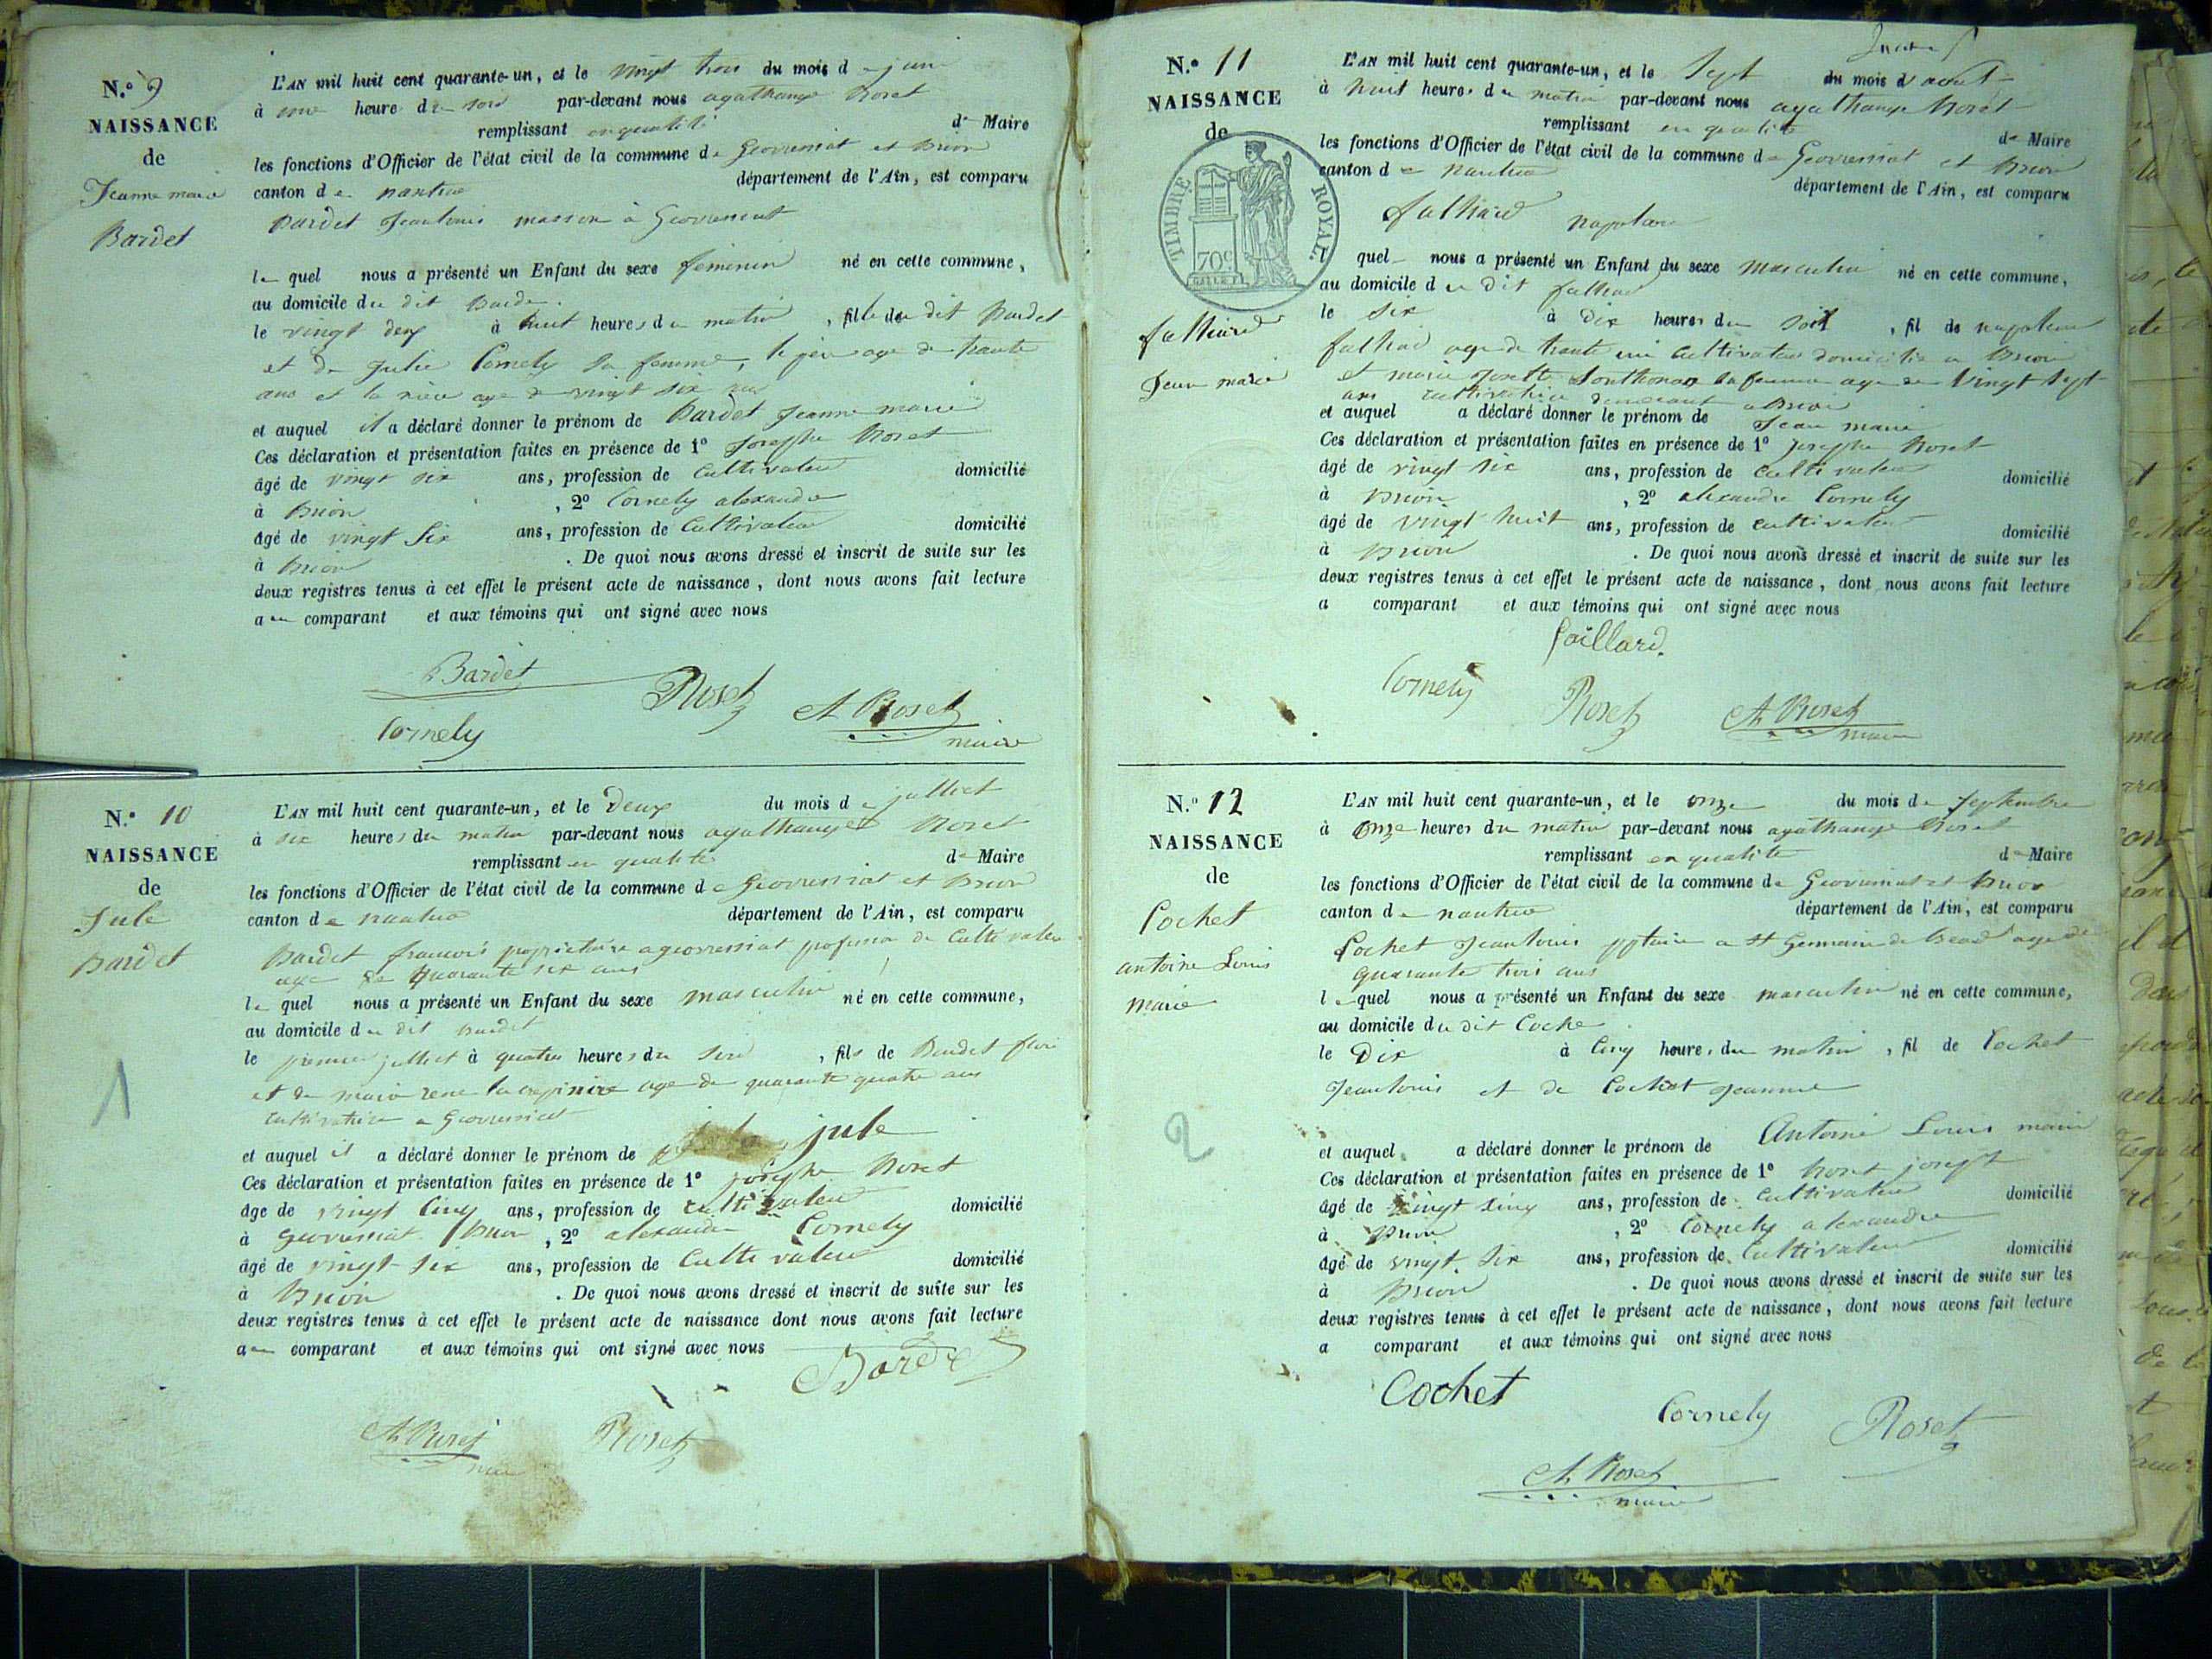 N.º 9
NAISSANCE
de
Jeanne marie
Bardet
L'AN mil huit cent quarante-un, et le vingt trois du mois de juin
à une heure du soir par-devant nous agathange Roset
remplissant en qualité de Maire
les fonctions d'Officier de l'état civil de la commune de Geovressiat et Brion
canton de nantua département de l'Ain, est comparu
Bardet Jean louis masson à Geovressiat
le quel nous a présenté un Enfant du sexe feminin né en cette commune,
au domicile du dit Barde
le vingt deux à huit heures du matin, fille du dit Bardet
et de Julie Cornely sa femme, le père age de trante
ans et la mère age de vingt six ans
et auquel il a déclaré donner le prénom de Bardet Jeanne marie
Ces déclaration et présentation faites en présence de 1º Josephe Roset
âgé de vingt six ans, profession de Cultivateur domicilié
à Brion, 2º Cornely alexandre
âgé de vingt Six ans, profession de Cultivateur domicilié
à Brion . De quoi nous avons dressé et inscrit de suite sur les
deux registres tenus à cet effet le présent acte de naissance, dont nous avons fait lecture
au comparant et aux témoins qui ont signé avec nous
Bardet
Roset
A Roset
Cornely
maire
N.º 10
NAISSANCE
de
Jule
Bardet
1
L'AN mil huit cent quarante-un, et le Deux du mois de julliet
à six heures du matin par-devant nous agathange Roset
remplissant en qualité de Maire
les fonctions d'Officier de l'état civil de la commune de Geovressiat et Brion
canton de nantua département de l'Ain, est comparu
Bardet francois propriétaire a geovressiat de Cultivateur
age de quarante six ans
le quel nous a présenté un Enfant du sexe masculin né en cette commune,
au domicile du dit Bardet
le premier julliet à quatre heures du soir, fils de Bardet
et de marie age de quarante quatre ans
cultivatrice a Geovressiat
et auquel il a déclaré donner le prénom de jule
Ces déclaration et présentation faites en présence de 1º josephe Roset
âge de vingt Cinq ans, profession de cultivateur domicilié
à Geovressiat Brion, 2º alexandre Cornely
âgé de vingt six ans, profession de Culti vateur domicilié
à Brion . De quoi nous avons dressé et inscrit de suite sur les
deux registres tenus à cet effet le présent acte de naissance dont nous avons fait lecture
au comparant et aux témoins qui ont signé avec nous
Bardet
A Roset
Roset
N.º 11
NAISSANCE
de
TIMBRE ROYAL.
70 C
falliard
Jean marie
L'AN mil huit cent quarante-un, et le Sept du mois d'aout
à huit heures du matin par-devant nous agathange Roset
remplissant en qualité de Maire
les fonctions d'Officier de l'état civil de la commune de Geovressiat et Brion
canton de nantua département de l'Ain, est comparu
falliard napoleon
quel nous a présenté un Enfant du sexe Masculin né en cette commune,
au domicile du Dit falliar
le six à dix heures du soir, fil de napoleon
age de trante un cultivateur domicilie a Brion
et marie Josette Souttonax sa femme age de Vingt Sept
ans cultivatrice a Brion
et auquel a déclaré donner le prénom de Jean marie
Ces déclaration et présentation faites en présence de 1º josephe Roset
âgé de vingt six ans, profession de cultivateur domicilié
à Brion, 2º alexandre Cornely
âgé de vingt huit ans, profession de cultivateur domicilié
à Brion . De quoi nous avons dressé et inscrit de suite sur les
deux registres tenus à cet effet le présent acte de naissance, dont nous avons fait lecture
a comparant et aux témoins qui ont signé avec nous
faillard.
Cornely
Roset
A Roset
maire
N.º 12
NAISSANCE
de
Cochet
antoine Louis
marie
2
L'AN mil huit cent quarante-un, et le onze du mois de Septembre
à onze heures du matin par-devant nous agathange Roset
remplissant en qualité de Maire
les fonctions d'Officier de l'état civil de la commune de Geovressiat et Brion
canton de nantua département de l'Ain, est comparu
Cochet Jean louis pptaire a St Germain de age de
quarante trois ans
le quel nous a présenté un Enfant du sexe masculin né en cette commune,
au domicile du dit Coche
le Dix à Cinq heures du matin, fil de Cochet
Jean louis et de Cochet Jeanne
et auquel a déclaré donner le prénom de Antoine Louis marie
Ces déclaration et présentation faites en présence de 1º Roset joseph
âgé de vingt cinq ans, profession de Cultivateur domicilié
à Brion, 2º Cornely alexandre
âgé de vingt Six ans, profession de Cultivateur domicilié
à Brion . De quoi nous avons dressé et inscrit de suite sur les
deux registres tenus à cet effet le présent acte de naissance, dont nous avons fait lecture
a comparant et aux témoins qui ont signé avec nous
Cochet
Cornely
Roset
A Roset
maire